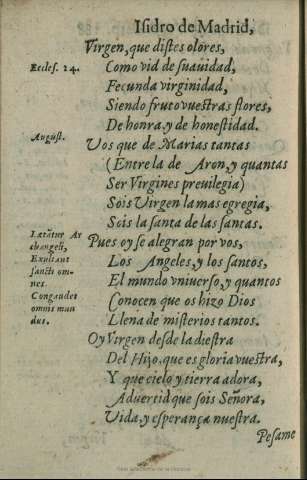 Isidro de Madrid,
Virgen, que distes olores,
Eccles. 24.
Como vid de suauidad,
Fecunda virginidad,
Siendo fruto vuestras flores,
De honra, y de honestidad.
August.
Vos que de Marias tantas
(Entre la de Aron, y quantas
Ser Virgines preuilegia)
Sois Virgen la mas egregia,
Sois la santa de las santas.
Lætātur Ar
changeli,
Exultant
sancti om-
nes.
Congaudet
omnis mun
dus.
Pues oy se alegran por vos,
Los Angeles, y los santos,
El mundo vniuerso, y quantos
Conocen que os hizo Dios
Llena de misterios tantos.
Oy Virgen desde la diestra
Del Hijo, que es gloria vuestra,
Y que cielo y tierra adora,
Aduertid que sois Señora,
Vida, y esperança nuestra.
Pesame